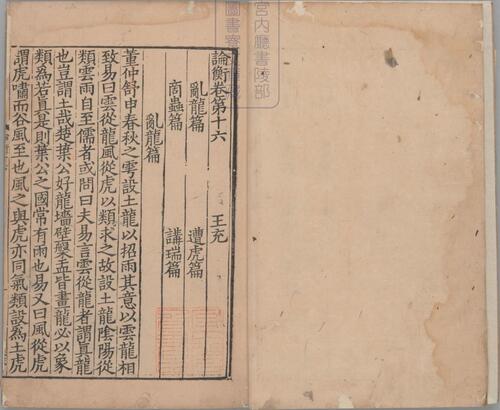 論衡卷第十六
王充
亂龍篇
遭虎篇
商蟲篇
講瑞篇
亂龍篇
董仲舒申春秋之雩設土龍以招雨其意以雲龍相
致易曰雲從龍風從虎以類求之故設土龍陰陽從
類雲雨自至儒者或問曰夫易言雲從龍者謂眞龍
也豈謂土哉楚葉公好龍墻壁槃盂皆畫龍必以象
類爲若眞是則葉公之國常有雨也易又曰風從虎
謂虎嘯而谷風至也風之與虎亦同氣類設爲土虎
宮內廳書陵部
圖書寮